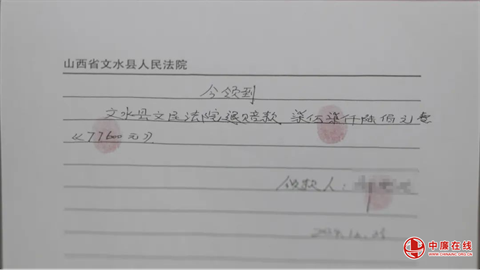 山西省文水县人民法院
今领到
文水县人民法院退赔款、柒万柒仟陆佰元整
《77600元》
领款人：
中廣在线